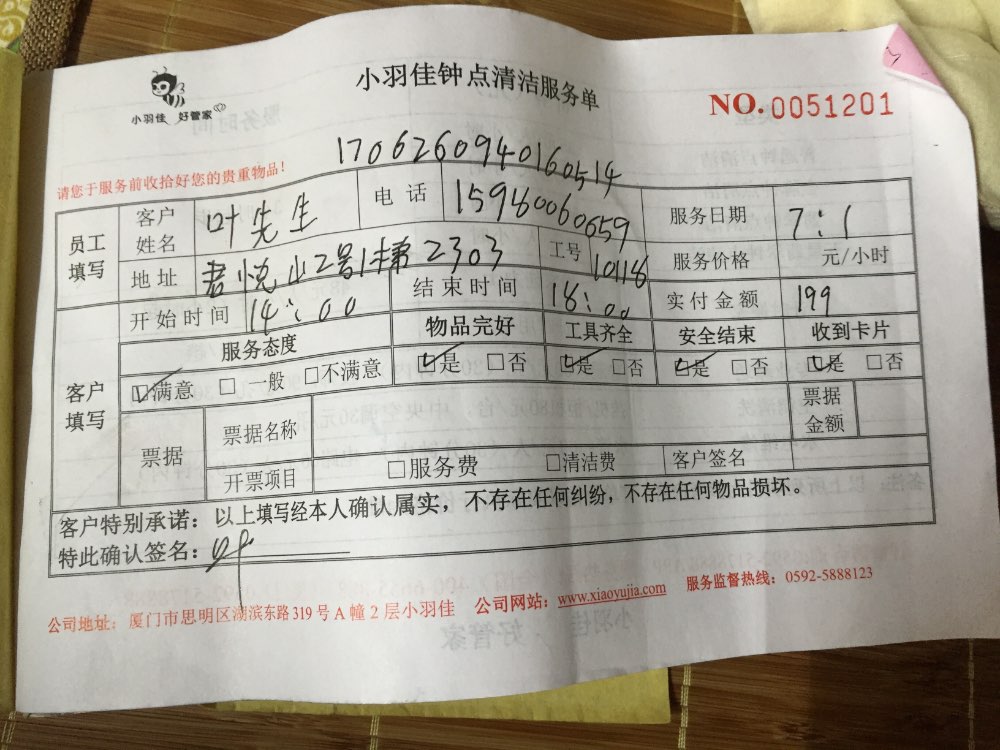 小羽佳 好管家
小羽佳钟点清洁服务单
NO.0051201
1706260940160514
请您于服务前收拾好您的贵重物品！
员工填写 客户姓名 叶先生 电话 15980060659 服务日期 7:1
地址 君悦山2号1梯2303 工号 10118 服务价格 元/小时
开始时间 14:00 结束时间 18:00 实付金额 199
客户填写 服务态度 物品完好 工具齐全 安全结束 收到卡片
☑满意 □一般 □不满意 ☑是 □否 ☑是 □否 ☑是 □否 ☑是 □否
票据 票据名称 票据金额
开票项目 □服务费 □清洁费 客户签名
客户特别承诺：以上填写经本人确认属实，不存在任何纠纷，不存在任何物品损坏。
特此确认签名：叶
公司地址：厦门市思明区湖滨东路319号A幢2层小羽佳 公司网站：www.xiaoyujia.com 服务监督热线：0592-5888123